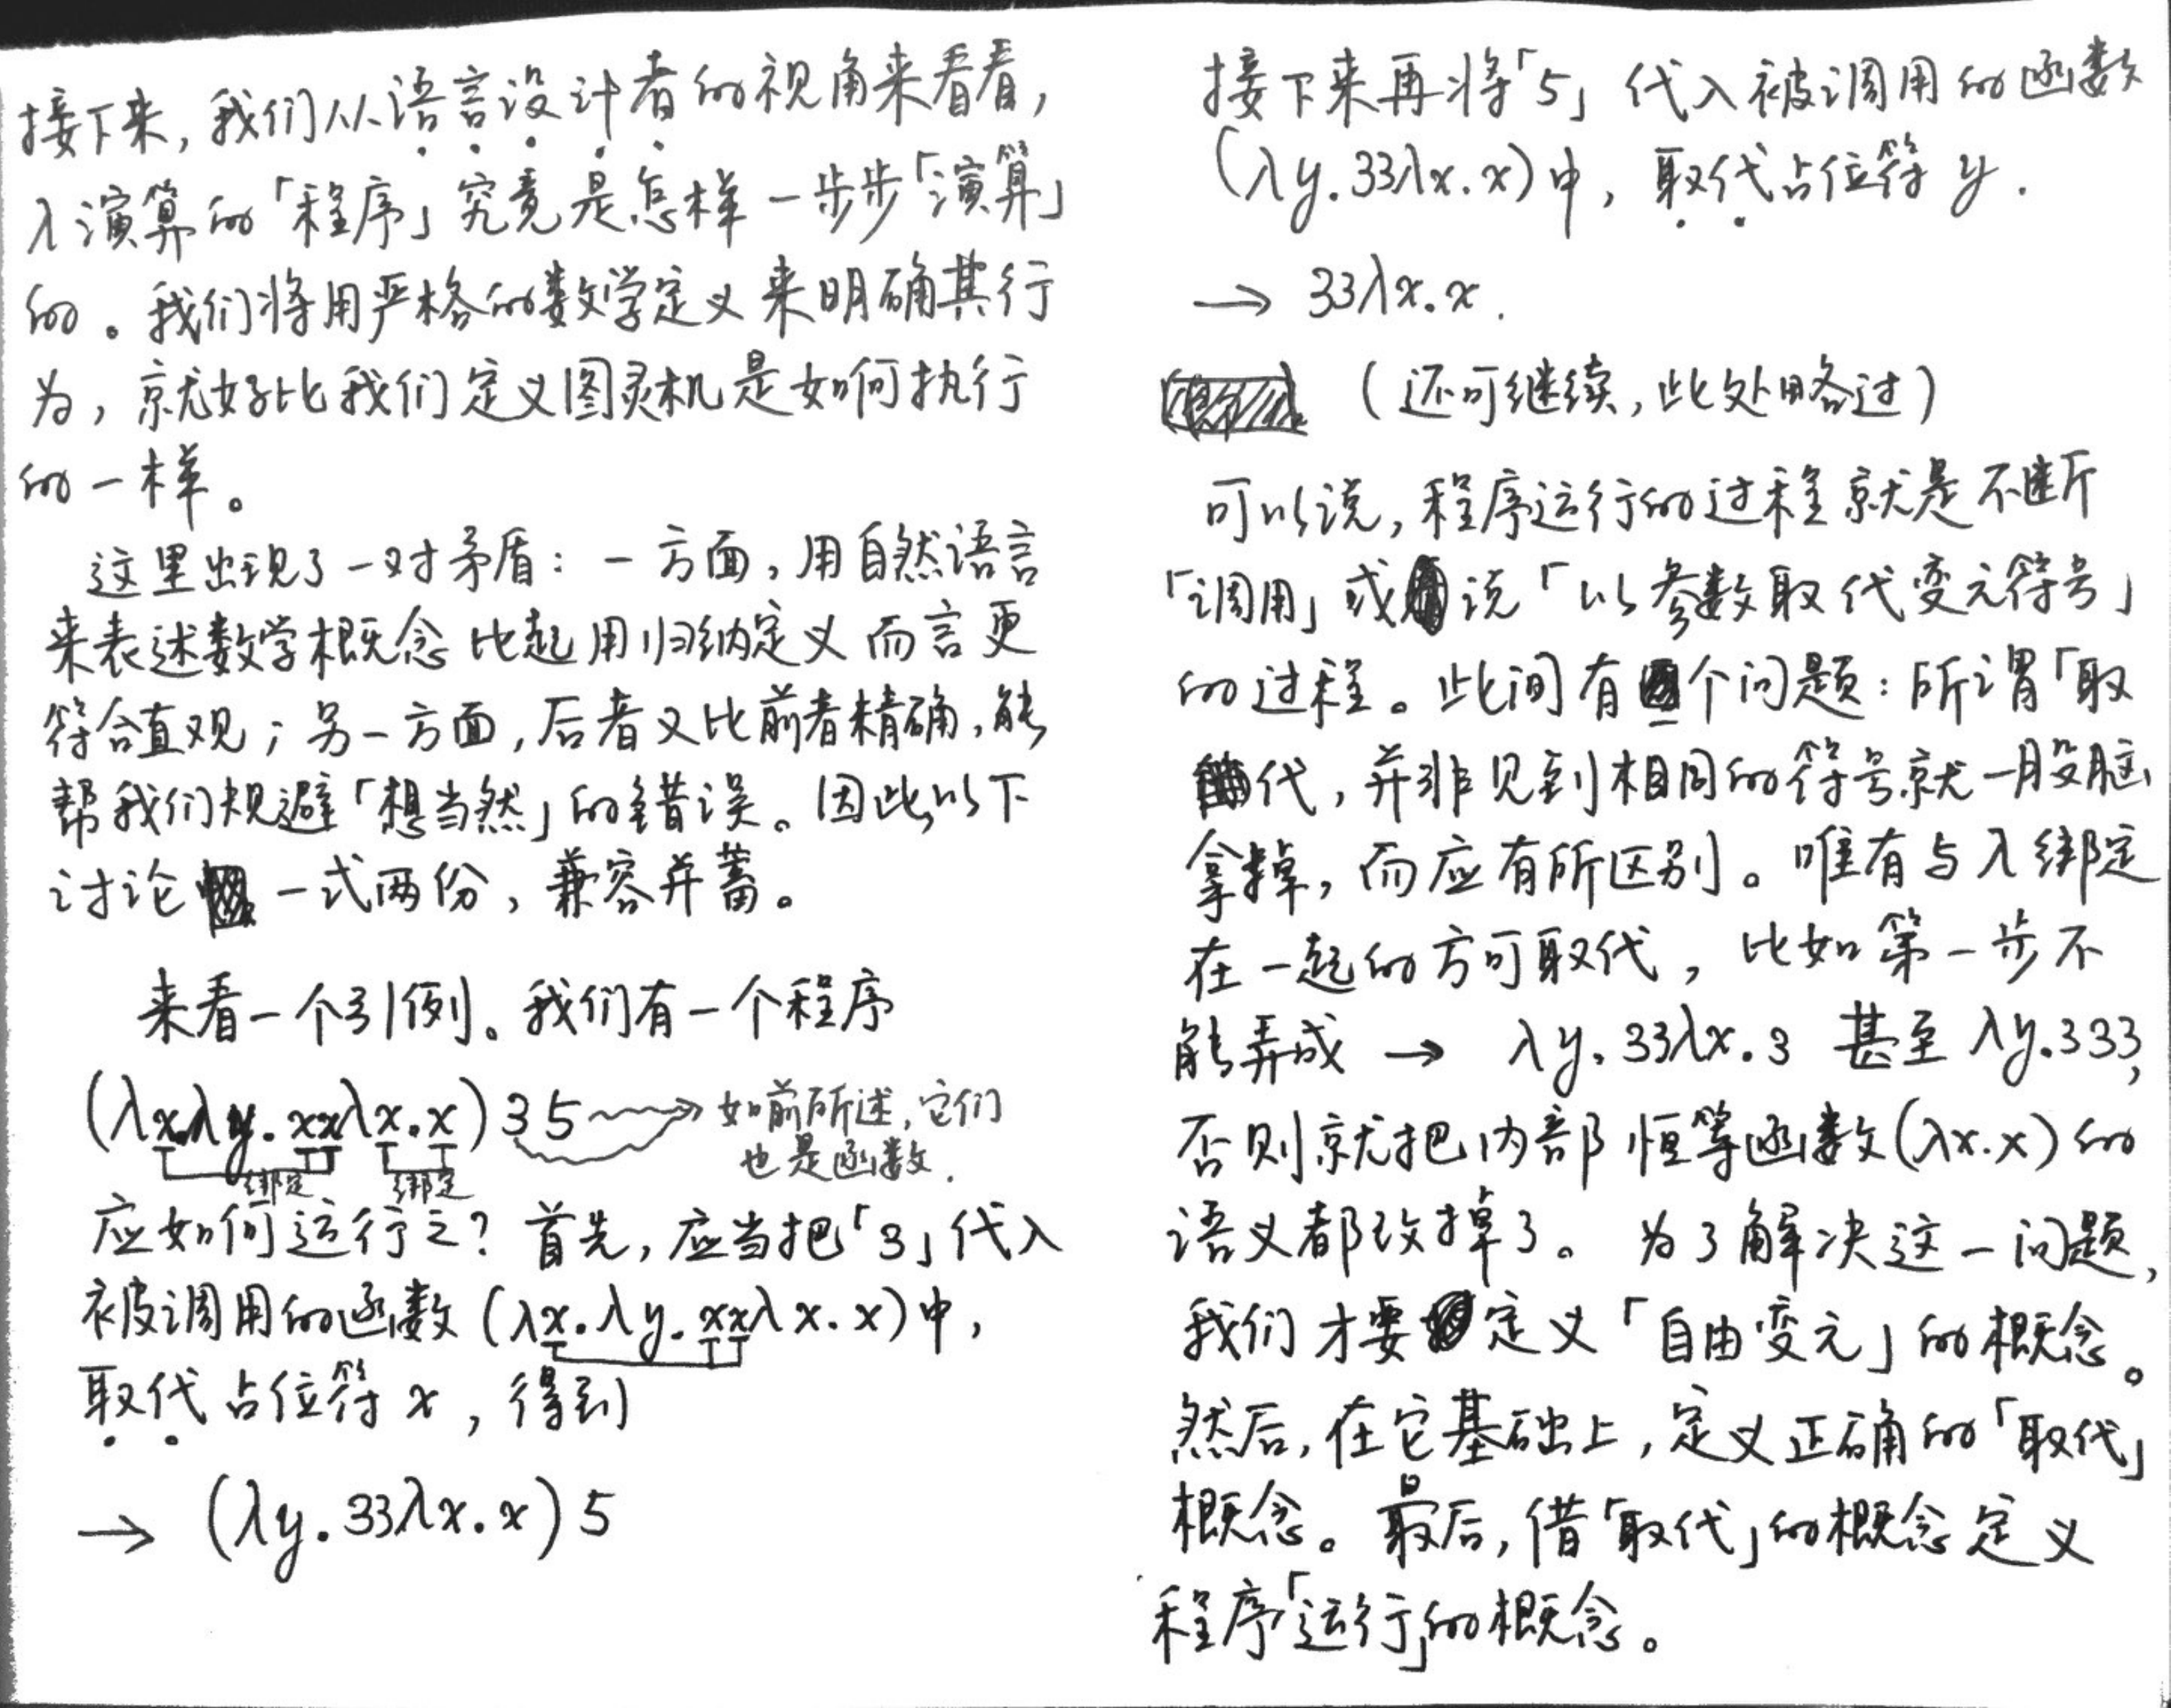 接下来,我们从语言设计者的视角来看看,
λ演算的「程序」究竟是怎样一步步「演算」
的。我们将用严格的数学定义来明确其行
为,就好比我们定义图灵机是如何执行
的一样。
这里出现了一对矛盾:一方面,用自然语言
来表述数学概念比起用归纳定义而言更
符合直观;另一方面,后者又比前者精确,能
帮我们规避「想当然」的错误。因此,以下
讨论一式两份,兼容并蓄。
来看一个引例。我们有一个程序
(λx.λy.xxλx.x)35 如前所述,它们
也是函数.
绑定 绑定
应如何运行之?首先,应当把「3」代入
被调用的函数(λx.λy.xxλx.x)中,
取代占位符x,得到
→ (λy.33λx.x)5
接下来再将「5」代入被调用的函数
(λy.33λx.x)中,取代占位符y.
→ 33λx.x.
(还可继续,此处略过)
可以说,程序运行的过程就是不断
「调用」或说「以参数取代变元符号」
的过程。此间有个问题:所谓「取
代,并非见到相同的符号就一股脑
拿掉,而应有所区别。唯有与λ绑定
在一起的方可取代,比如第一步不
能弄成 → λy.33λx.3 甚至 λy.333,
否则就把内部恒等函数(λx.x)的
语义都改掉了。为了解决这一问题,
我们才要定义「自由变元」的概念。
然后,在它基础上,定义正确的「取代」
概念。最后,借「取代」的概念定义
程序「运行」的概念。